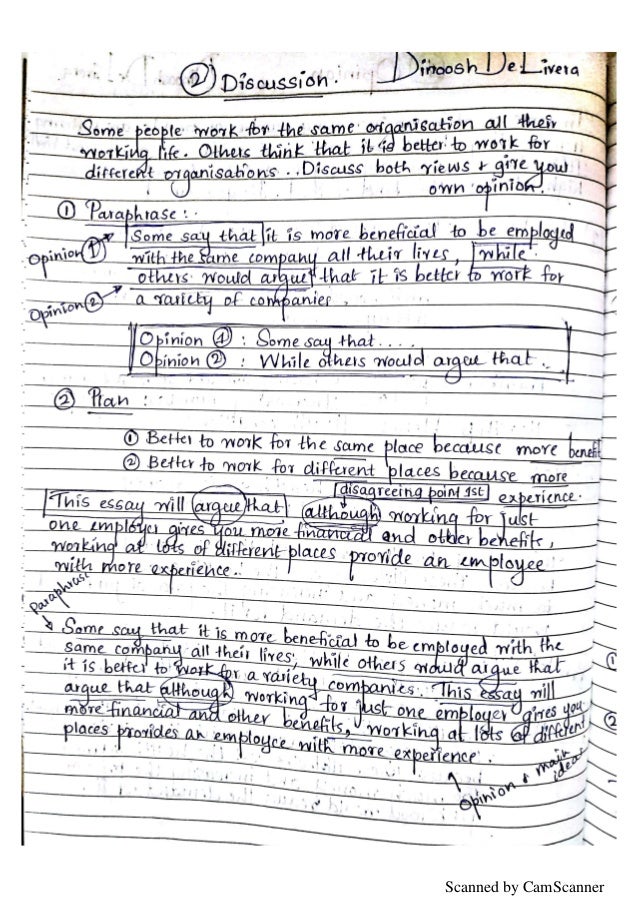 ② Discussion. Dinoosh De Livera
Some people work for the same organisation all their
working life. Others think that it is better to work for
different organisations .. Discuss both views + give your
own opinion.
① Paraphrase : .
Opinion ① Some say that it is more beneficial to be employed
with the same company all their lives, while
others would argue that it is better to work for
Opinion ② a variety of companies.
Opinion ① : Some say that ....
Opinion ② : While others would argue that ..
② Plan : -
① Better to work for the same place because more benefit
② Better to work for different places because more
disagreeing point 1st experience.
This essay will argue that although working for just
one employer gives you more financial and other benefits,
working at lots of different places provide an employee
with more experience.
Paraphrase
Some say that it is more beneficial to be employed with the
same company all their lives, while others would argue that
it is better to work for a variety companies. This essay will
argue that although working for just one employer gives you
more financial and other benefits, working at lots of different
places provides an employee with more experience.
opinion + main
idea
①
②
Scanned by CamScanner